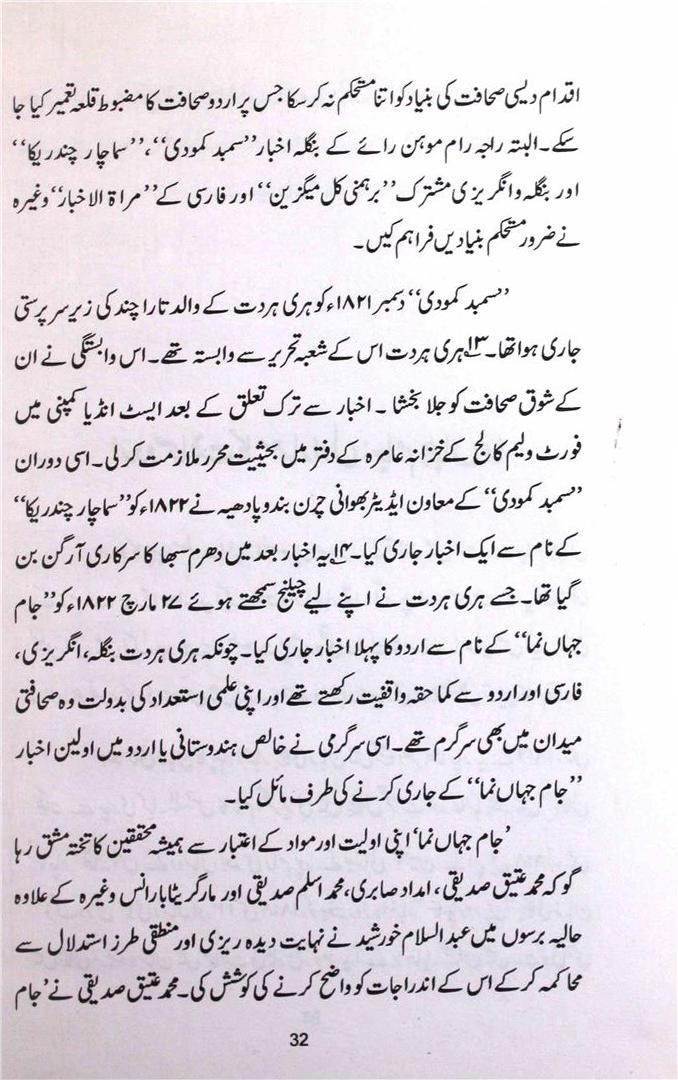 اقدام دیسی صحافت کی بنیاد کو اتنا مستحکم نہ کر سکا جس پر اردو صحافت کا مضبوط قلعہ تعمیر کیا جا
سکے۔ البتہ راجہ رام موہن رائے کے بنگلہ اخبار ”سمبد کمودی“، ”سماچار چندریکا“
اور بنگلہ و انگریزی مشترک ”برہمنی کل میگزین“ اور فارسی کے ”مراۃ الاخبار“ وغیرہ
نے ضرور مستحکم بنیادیں فراہم کیں۔
”سمبد کمودی“ دسمبر ۱۸۲۱ء کو ہری ہردت کے والد تارا چند کی زیر سرپرستی
جاری ہوا تھا۔۱۳؎ ہری ہردت اس کے شعبہ تحریر سے وابستہ تھے۔ اس وابستگی نے ان
کے شوق صحافت کو جلا بخشا ۔ اخبار سے ترک تعلق کے بعد ایسٹ انڈیا کمپنی میں
فورٹ ولیم کالج کے خزانہ عامرہ کے دفتر میں بحیثیت محرر ملازمت کر لی۔ اسی دوران
”سمبد کمودی“ کے معاون ایڈیٹر بھوانی چرن بندوپادھیہ نے ۱۸۲۲ء کو ”سماچار چندریکا“
کے نام سے ایک اخبار جاری کیا۔۱۴؎ یہ اخبار بعد میں دھرم سبھا کا سرکاری آرگن بن
گیا تھا۔ جسے ہری ہردت نے اپنے لیے چیلنج سمجھتے ہوئے ۲۷ مارچ ۱۸۲۲ء کو ”جام
جہاں نما“ کے نام سے اردو کا پہلا اخبار جاری کیا۔ چونکہ ہری ہردت بنگلہ، انگریزی،
فارسی اور اردو سے کما حقہ واقفیت رکھتے تھے اور اپنی علمی استعداد کی بدولت وہ صحافتی
میدان میں بھی سرگرم تھے۔ اسی سرگرمی نے خالص ہندوستانی یا اردو میں اولین اخبار
”جام جہاں نما“ کے جاری کرنے کی طرف مائل کیا۔
’جام جہاں نما‘ اپنی اولیت اور مواد کے اعتبار سے ہمیشہ محققین کا تختہ مشق رہا
گو کہ محمد عتیق صدیقی، امداد صابری، محمد اسلم صدیقی اور مارگریٹا بارانس وغیرہ کے علاوہ
حالیہ برسوں میں عبد السلام خورشید نے نہایت دیدہ ریزی اور منطقی طرز استدلال سے
محاکمہ کرکے اس کے اندراجات کو واضح کرنے کی کوشش کی۔ محمد عتیق صدیقی نے ’جام
32